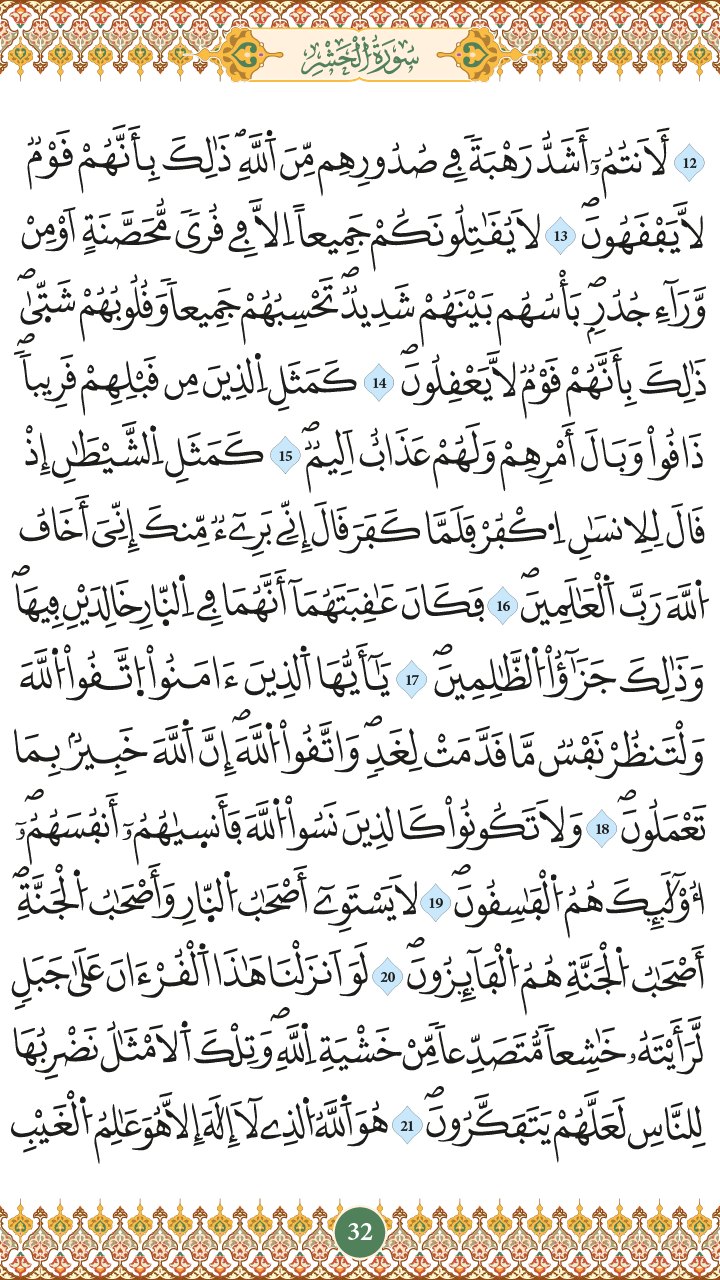 سُورَةُ الْحَشْرِ
12 لَأَنتُمُۥٓ أَشَدُّ رَهْبَةً فِے صُدُورِهِم مِّنَ اَ۬للَّهِۖ ذَٰلِكَ بِأَنَّهُمْ قَوْمٞ
لَّا يَفْقَهُونَۖ 13 لَا يُقَٰتِلُونَكُمْ جَمِيعاً اِلَّا فِے قُرىٗ مُّحَصَّنَةٍ اَوْ مِنْ
وَّرَآءِ جُدُرِۢۖ بَأْسُهُم بَيْنَهُمْ شَدِيدٞۖ تَحْسِبُهُمْ جَمِيعاٗ وَقُلُوبُهُمْ شَتّ۪ىٰۖ
ذَٰلِكَ بِأَنَّهُمْ قَوْمٞ لَّا يَعْقِلُونَۖ 14 كَمَثَلِ اِ۬لذِينَ مِن قَبْلِهِمْ قَرِيباٗۖ
ذَاقُواْ وَبَالَ أَمْرِهِمْ وَلَهُمْ عَذَابٌ اَلِيمٞۖ 15 كَمَثَلِ اِ۬لشَّيْطَٰنِ إِذْ
قَالَ لِلِانسَٰنِ اِ۟كْفُرْ فَلَمَّا كَفَرَ قَالَ إِنِّے بَرِےٓءٞ مِّنكَ إِنِّيَ أَخَافُ
اُ۬للَّهَ رَبَّ اَ۬لْعَٰلَمِينَۖ 16 فَكَانَ عَٰقِبَتَهُمَآ أَنَّهُمَا فِے اِ۬لنّ۪ارِ خَٰلِدَيْنِ فِيهَاۖ
وَذَٰلِكَ جَزَٰٓؤُاْ اُ۬لظَّٰلِمِينَۖ 17 يَٰٓأَيُّهَا اَ۬لذِينَ ءَامَنُواْ اُ۪تَّقُواْ اُ۬للَّهَ
وَلْتَنظُرْ نَفْسٞ مَّا قَدَّمَتْ لِغَدٖۖ وَاتَّقُواْ اُ۬للَّهَۖ إِنَّ اَ۬للَّهَ خَبِيرُۢ بِمَا
تَعْمَلُونَۖ 18 وَلَا تَكُونُواْ كَالذِينَ نَسُواْ اُ۬للَّهَ فَأَنس۪يٰهُمُۥٓ أَنفُسَهُمُۥٓۖ
أُوْلَٰٓئِكَ هُمُ اُ۬لْفَٰسِقُونَۖ 19 لَا يَسْتَوِےٓ أَصْحَٰبُ اُ۬لنّ۪ارِ وَأَصْحَٰبُ اُ۬لْجَنَّةِۖ
أَصْحَٰبُ اُ۬لْجَنَّةِ هُمُ اُ۬لْفَآئِزُونَۖ 20 لَوَ اَنزَلْنَا هَٰذَا اَ۬لْقُرْءَانَ عَلَىٰ جَبَلٖ
لَّرَأَيْتَهُۥ خَٰشِعاٗ مُّتَصَدِّعاٗ مِّنْ خَشْيَةِ اِ۬للَّهِۖ وَتِلْكَ اَ۬لَامْثَٰلُ نَضْرِبُهَا
لِلنَّاسِ لَعَلَّهُمْ يَتَفَكَّرُونَۖ 21 هُوَ اَ۬للَّهُ اُ۬لذِے لَآ إِلَٰهَ إِلَّا هُوَ عَٰلِمُ اُ۬لْغَيْبِ
32